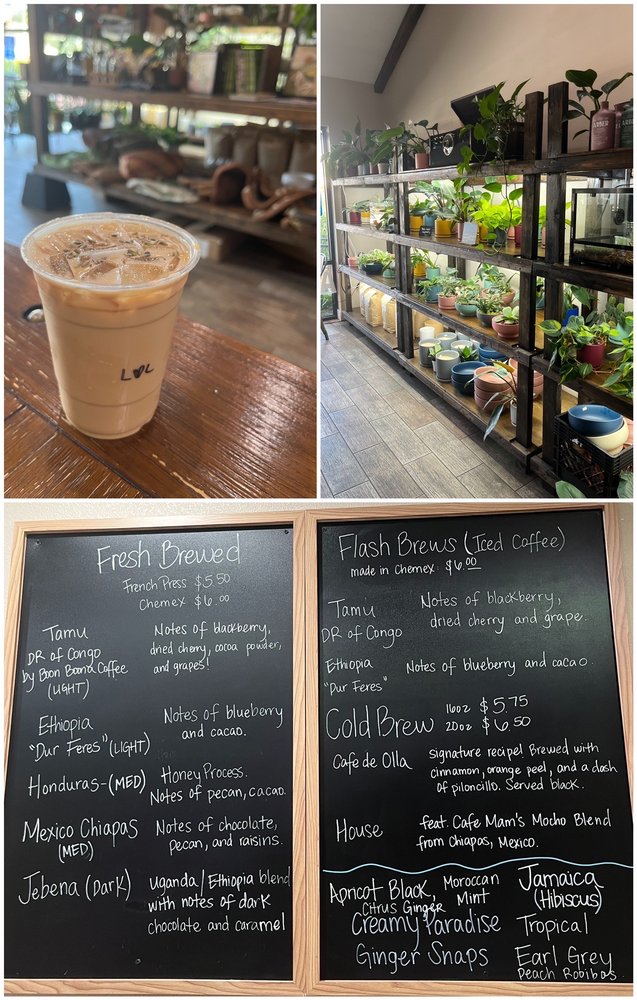 L♥L
Fresh Brewed
French Press $5.50
Chemex $6.00
Tamu
DR of Congo
by Boon Boona Coffee
(LIGHT)
Notes of blackberry,
dried cherry, cocoa powder,
and grapes!
Ethiopia
"Dur Feres" (LIGHT)
Notes of blueberry
and cacao.
Honduras-(MED)
Honey Process.
Notes of pecan, cacao.
Mexico Chiapas
(MED)
Notes of chocolate,
pecan, and raisins.
Jebena (Dark)
Uganda/Ethiopia blend
with notes of dark
chocolate and caramel
Flash Brews (Iced Coffee)
made in Chemex: $6.00
Tamu
DR of Congo
Notes of blackberry,
dried cherry and grape.
Ethiopia
"Dur Feres"
Notes of blueberry and cacao.
Cold Brew
16oz $5.75
20oz $6.50
Cafe de Olla
signature recipe! Brewed with
cinnamon, orange peel, and a dash
of piloncillo. Served black.
House
feat. Cafe Mam's Mocho Blend
from Chiapas, Mexico.
Apricot Black,
Citrus Ginger
Moroccan
Mint
Jamaica
(Hibiscus)
Creamy Paradise
Tropical
Ginger Snaps
Earl Grey
Peach Robibos